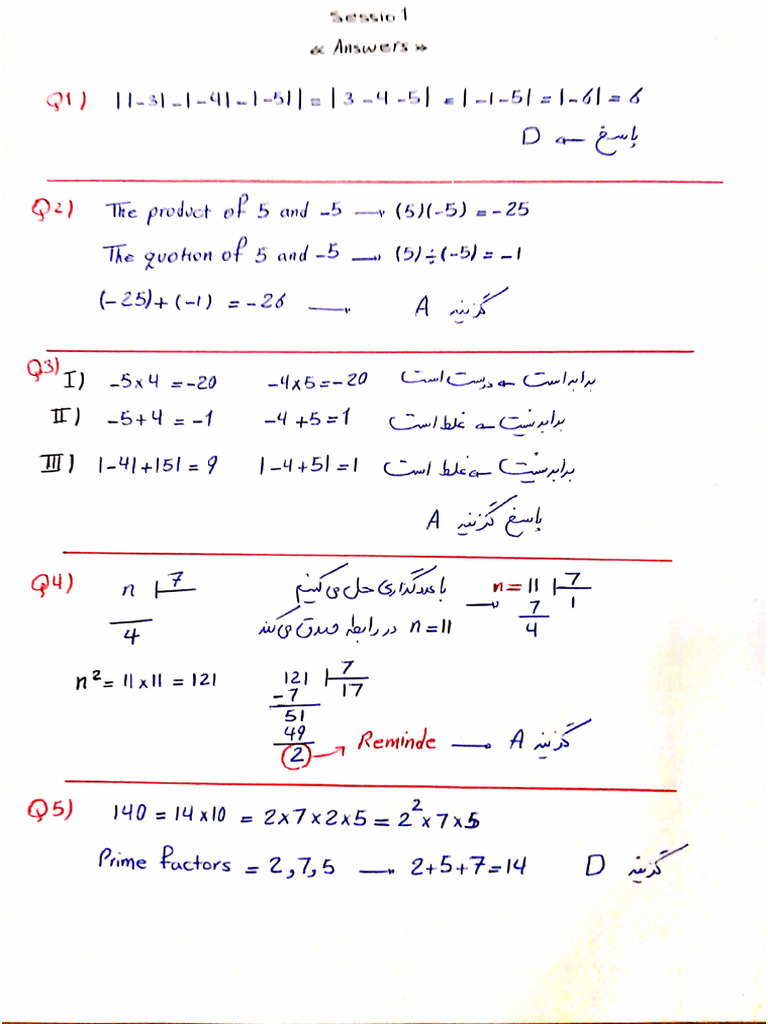 Sessio 1
« Answers »
Q1) ||-3|-|-4|-|-5|| = |3-4-5| = |-1-5| = |-6| = 6
پاسخ ← D
Q2) The product of 5 and -5 → (5)(-5) = -25
The quotion of 5 and -5 → (5)÷(-5) = -1
(-25)+(-1) = -26 → گزینه A
Q3)
I) -5x4 = -20 -4x5 = -20 برابر است ← درست است
II) -5+4 = -1 -4+5 = 1 برابر نیست ← غلط است
III) |-4|+|5| = 9 |-4+5| = 1 برابر نیست ← غلط است
پاسخ گزینه A
Q4) n 7 با عددگذاری حل می کنیم → n = 11 7
7 1
4 n = 11 در رابطه صدق می کند 4
n² = 11 x 11 = 121 121 7
-7 17
51
49
2 → Reminde → گزینه A
Q5) 140 = 14 x 10 = 2x7x2x5 = 2² x 7 x 5
Prime factors = 2,7,5 → 2+5+7 = 14 گزینه D